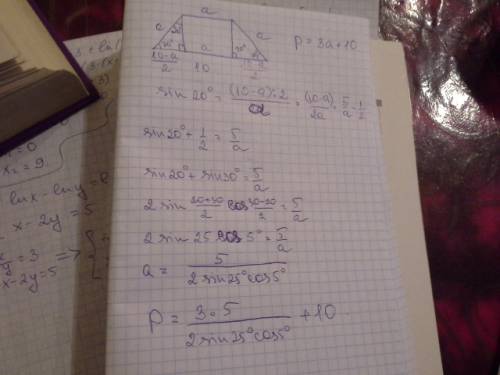 a
c a
a
P = 3a+10
10-a
2
10
sin 20° = (10-a):2 / a = (10-a) / 2a = 5/a - 1/2
sin 20° + 1/2 = 5/a
sin 20° + sin 30° = 5/a
2 sin 20+30/2 cos 30-20/2 = 5/a
2 sin 25 cos 5° = 5/a
a = 5 / 2 sin 25° cos 5°
P = 3·5 / 2 sin 25° cos 5° + 10
x₂ = 9
x - 2y = 5
= 3 =>
x - 2y = 5